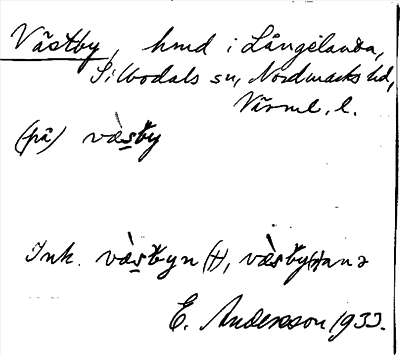 Västby, hmd i Långelanda,
Silbodals sn, Nordmarks hd,
Värml. l.
(på) væ̀s̱by
Ink. væ̀s̱byn (H), væ̀sby(H)anə
E. Andersson 1933.